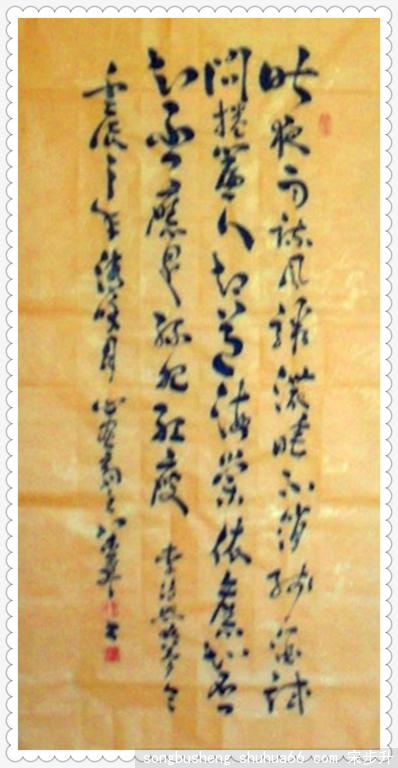 昨夜雨疏风骤濃睡不消残酒試
問捲簾人却道海棠依舊知否
知否應是綠肥紅瘦 李清照如夢令
壬辰之年
songbusheng.shuhua66.com 宋步升